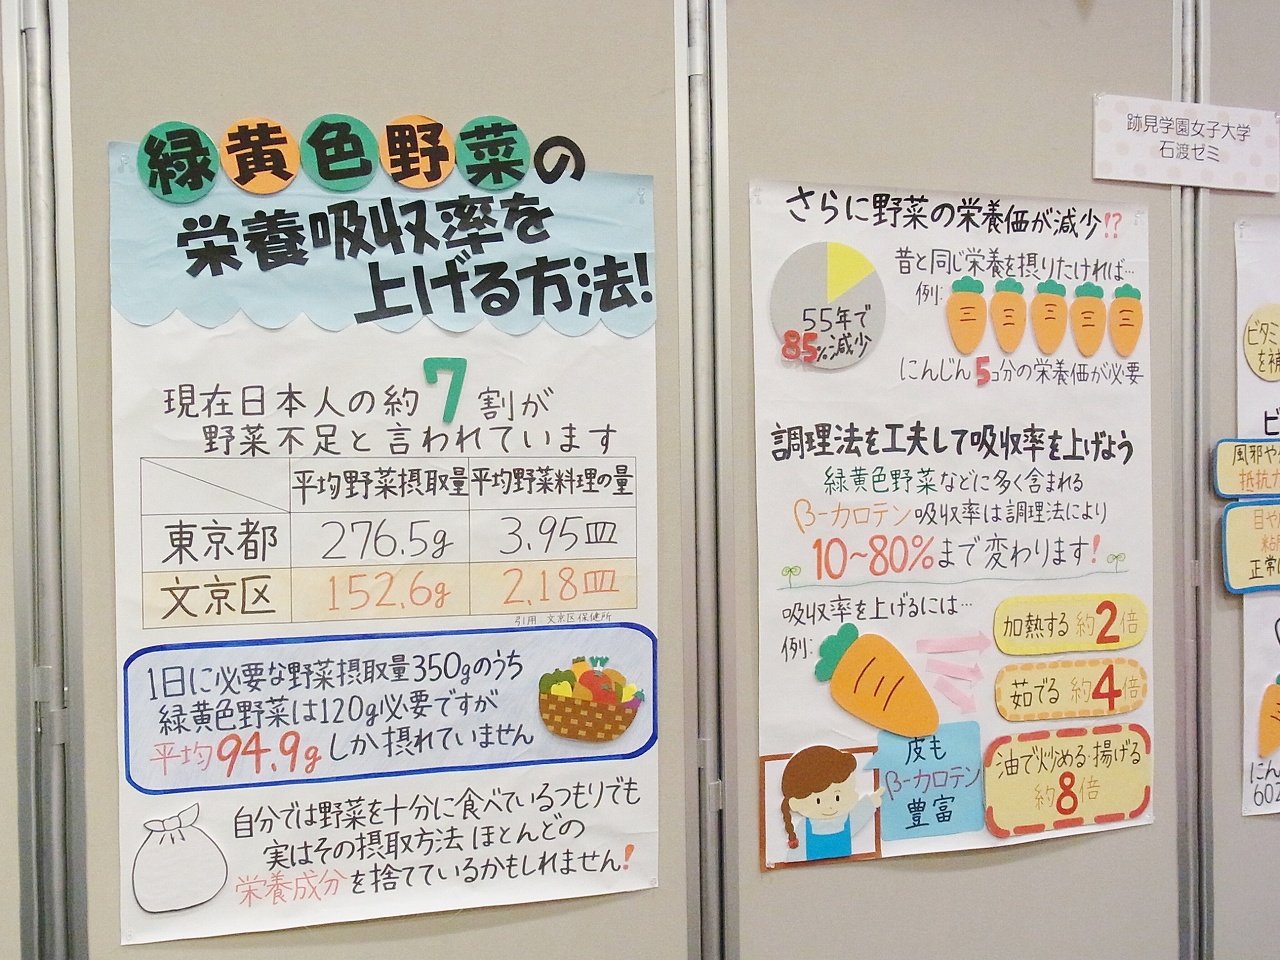 緑黄色野菜の
栄養吸収率を
上げる方法!
現在日本人の約7割が
野菜不足と言われています
平均野菜摂取量 平均野菜料理の量
東京都 276.5g 3.95皿
文京区 152.6g 2.18皿
引用 文京区保健所
1日に必要な野菜摂取量350gのうち
緑黄色野菜は120g必要ですが
平均94.9gしか摂れていません
自分では野菜を十分に食べているつもりでも
実はその摂取方法 ほとんどの
栄養成分を捨てているかもしれません!
さらに野菜の栄養価が減少!?
55年で
85%減少
昔と同じ栄養を摂りたければ…
例:
にんじん5コ分の栄養価が必要
調理法を工夫して吸収率を上げよう
緑黄色野菜などに多く含まれる
β-カロテン吸収率は調理法により
10~80%まで変わります!
吸収率を上げるには…
例:
加熱する 約2倍
茹でる 約4倍
油で炒める・揚げる
約8倍
皮も
β-カロテン
豊富
跡見学園女子大学
石渡ゼミ
ビタミ
を補
ビ
風邪や
抵抗力
目や
粘
正常に
にん
602